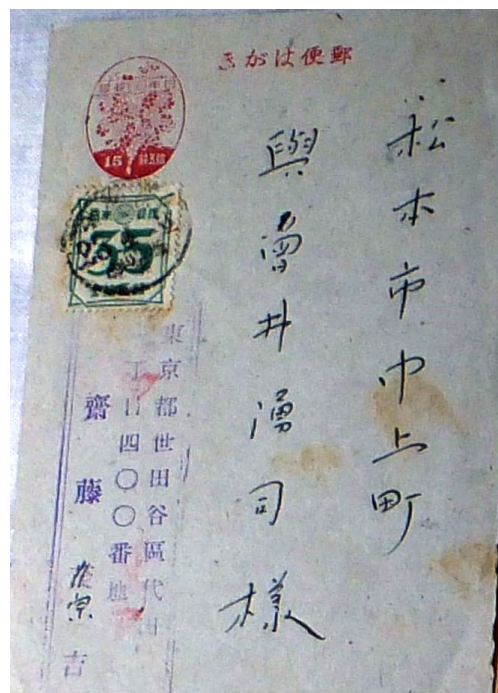 郵便はがき
15
35
松本市中上町
與曽井湧司様
東京都世田谷區代田
丁目四〇〇番地
齋藤宗吉